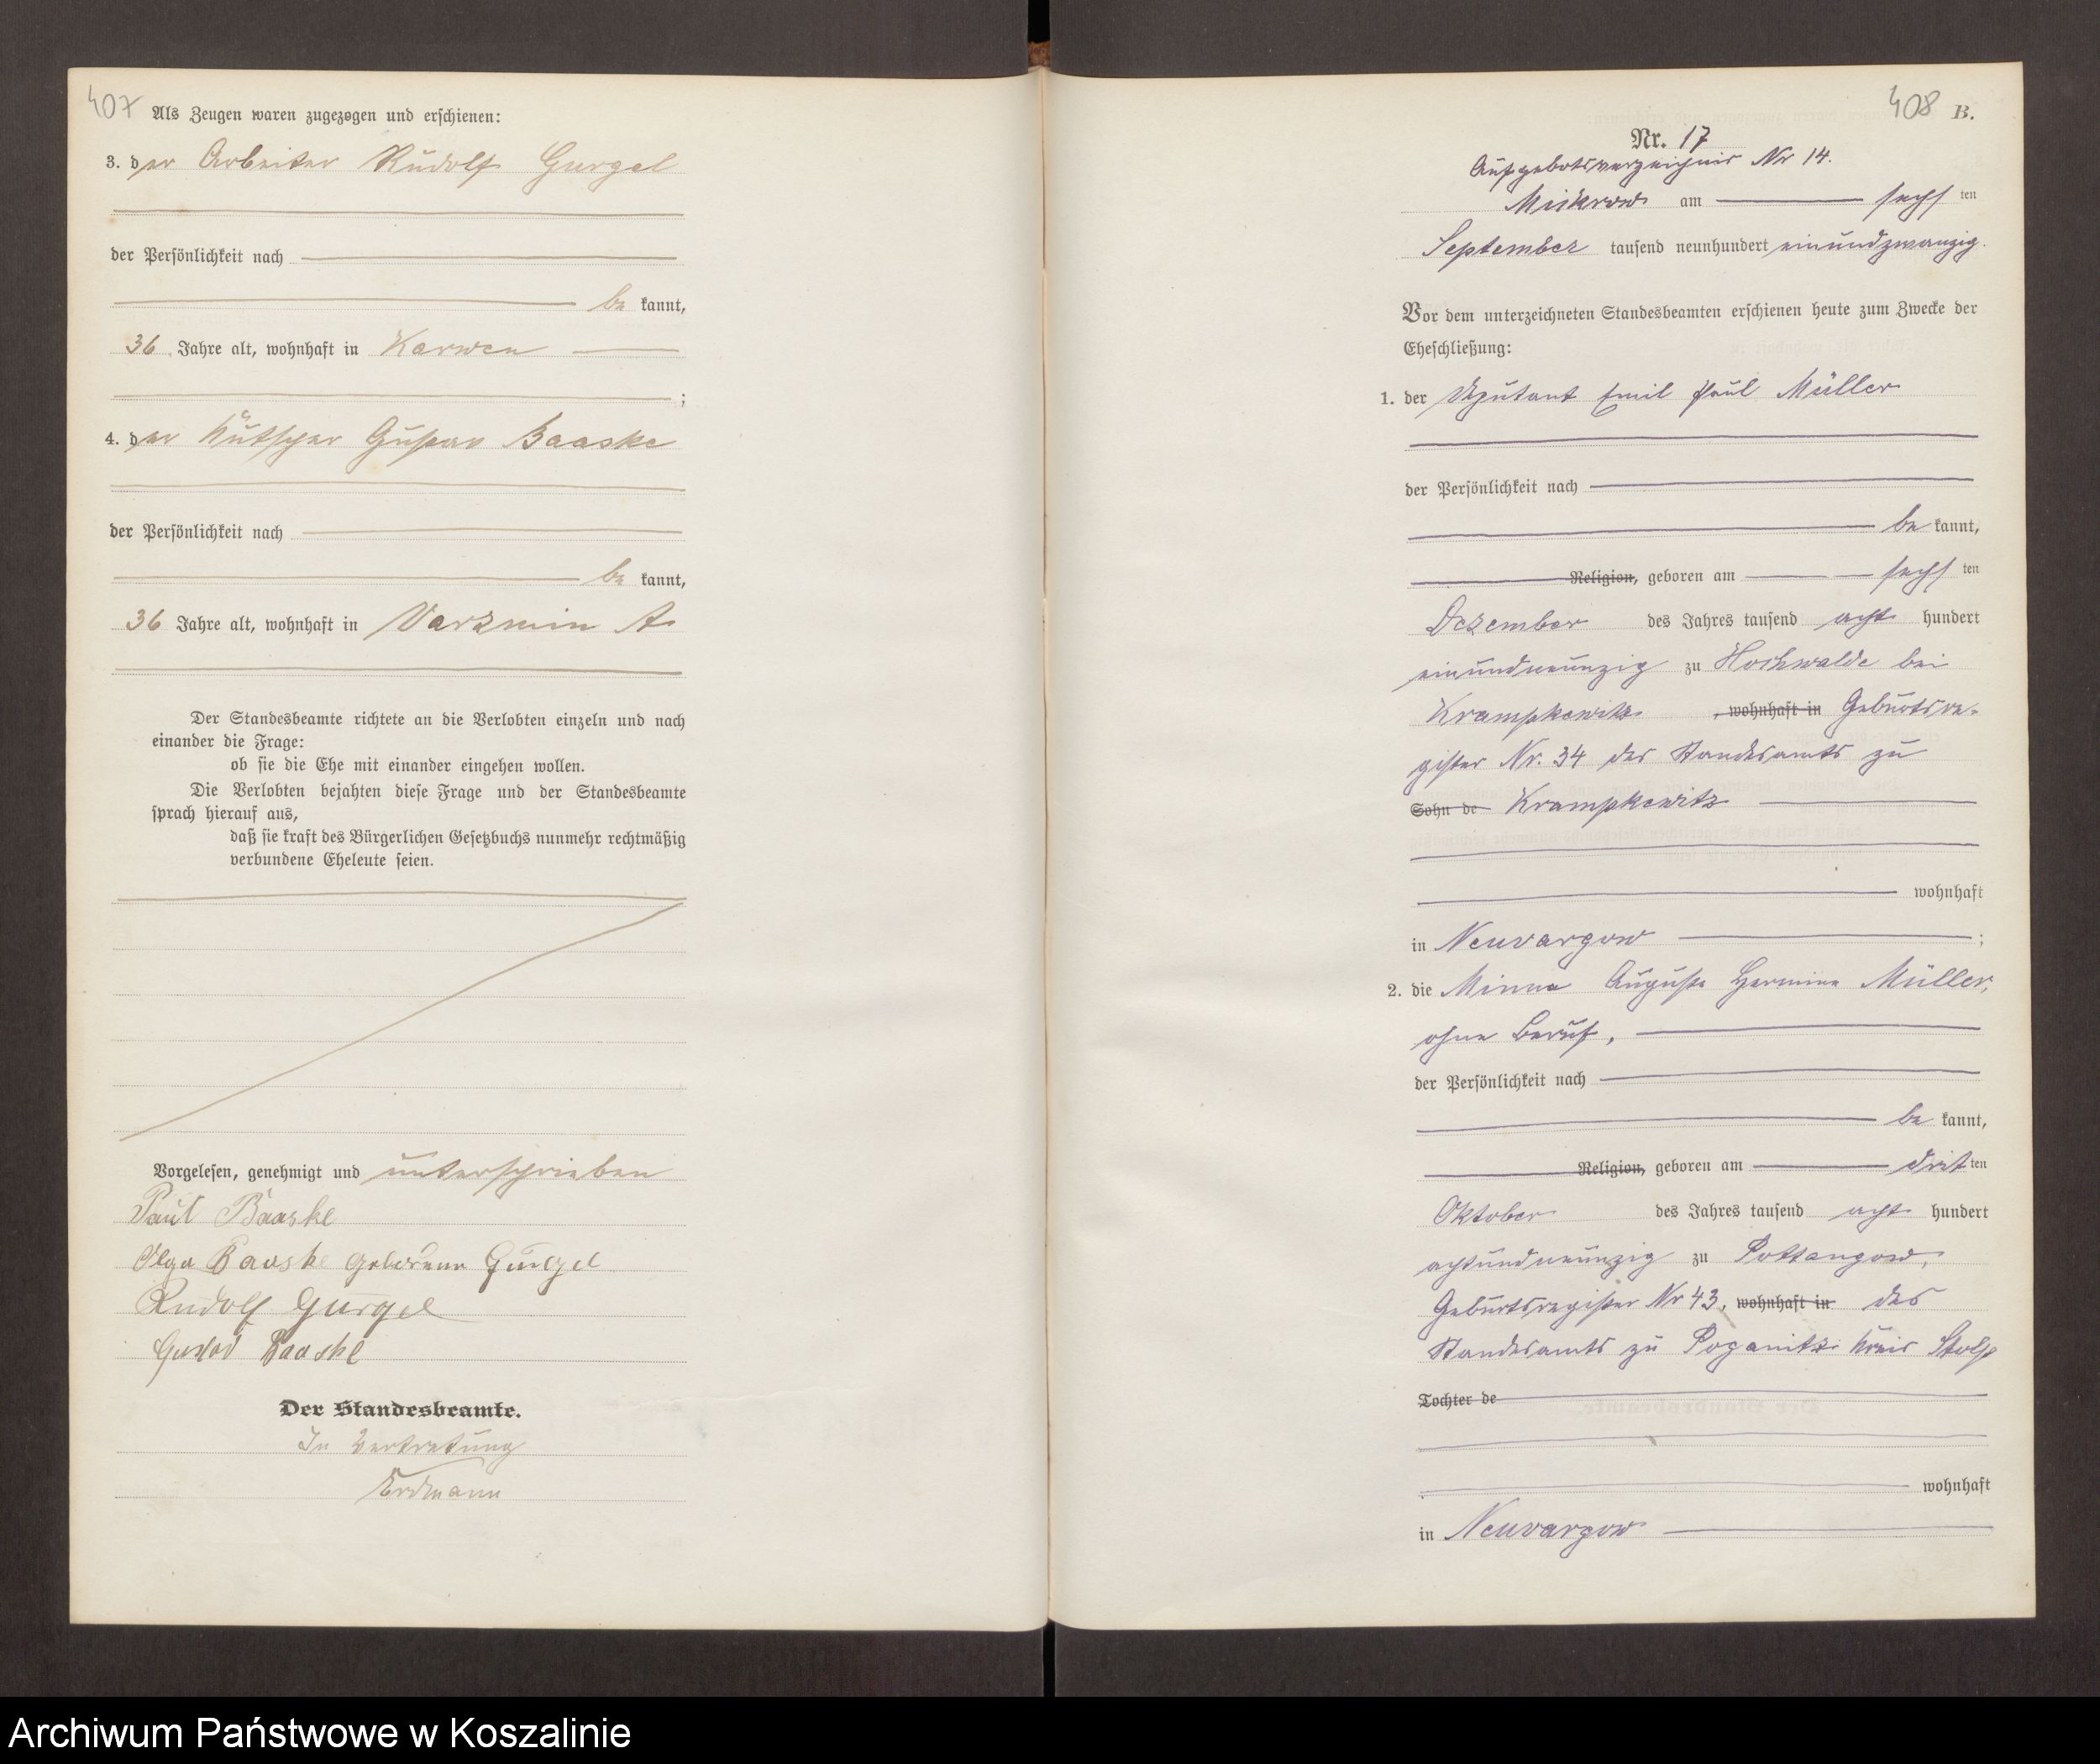 407
Als Zeugen waren zugezogen und erschienen:
3. der Arbeiter Rudolf Gurgel
der Persönlichkeit nach
be kannt,
36 Jahre alt, wohnhaft in Karwen
;
4. der Kutscher Gustav Baaske
der Persönlichkeit nach
be kannt,
36 Jahre alt, wohnhaft in Varzmin A
Der Standesbeamte richtete an die Verlobten einzeln und nach
einander die Frage:
ob sie die Ehe mit einander eingehen wollen.
Die Verlobten bejahten diese Frage und der Standesbeamte
sprach hierauf aus,
daß sie kraft des Bürgerlichen Gesetzbuchs nunmehr rechtmäßig
verbundene Eheleute seien.
Vorgelesen, genehmigt und unterschrieben
Paul Baaske
Olga Baaske geborene Gurgel
Rudolf Gurgel
Gustav Baaske
Der Standesbeamte.
In Vertretung
Erdmann
408 B.
Nr. 17
Aufgebotsverzeichnis Nr 14.
Mickrow am sechs ten
September tausend neunhundert einundzwanzig.
Vor dem unterzeichneten Standesbeamten erschienen heute zum Zwecke der
Eheschließung:
1. der Deputant Emil Paul Müller
der Persönlichkeit nach
be kannt,
Religion, geboren am sechs ten
Dezember des Jahres tausend acht hundert
einundneunzig zu Hochwalde bei
Krampkewitz, wohnhaft in Geburtsre-
gister Nr. 34 des Standesamts zu
Sohn de Krampkewitz
wohnhaft
in Neuvargow ;
2. die Minna Auguste Hermine Müller,
ohne Beruf,
der Persönlichkeit nach
be kannt,
Religion, geboren am drit ten
Oktober des Jahres tausend acht hundert
achtundneunzig zu Pottangow,
Geburtsregister Nr 43, wohnhaft in des
Standesamts zu Poganitz Kreis Stolp
Tochter de
wohnhaft
in Neuvargow
Archiwum Państwowe w Koszalinie